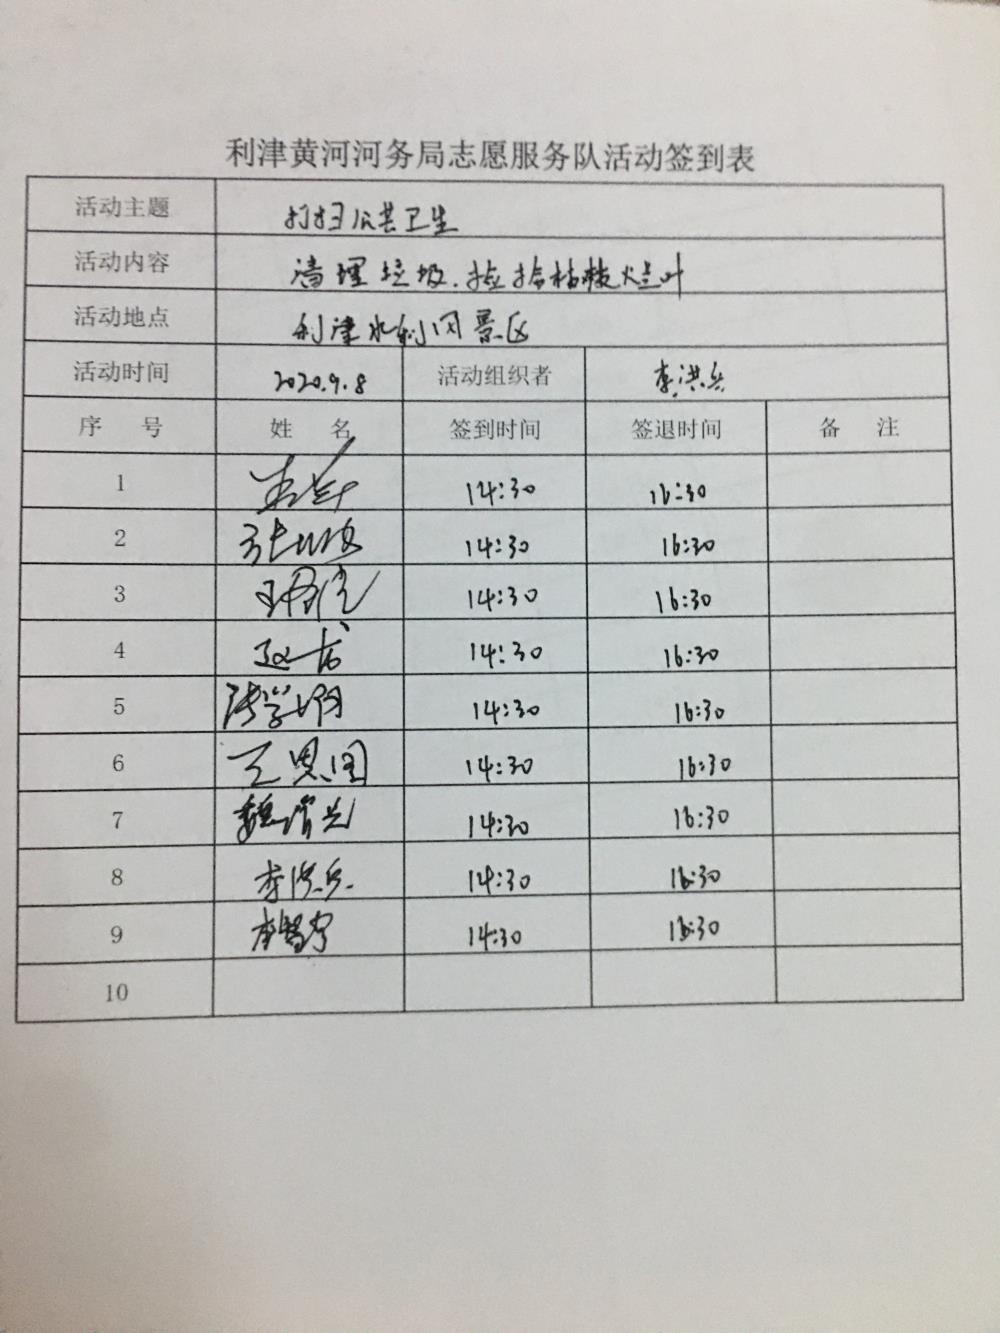 利津黄河河务局志愿服务队活动签到表
活动主题 打扫公共卫生
活动内容 清理垃圾.捡拾枯枝烂叶
活动地点 利津水利风景区
活动时间 2020.9.8 活动组织者 李洪兵
序 号 姓 名 签到时间 签退时间 备 注
1 14:30 16:30
2 14:30 16:30
3 14:30 16:30
4 14:30 16:30
5 14:30 16:30
6 王恩国 14:30 16:30
7 14:30 16:30
8 李洪兵 14:30 16:30
9 14:30 16:30
10